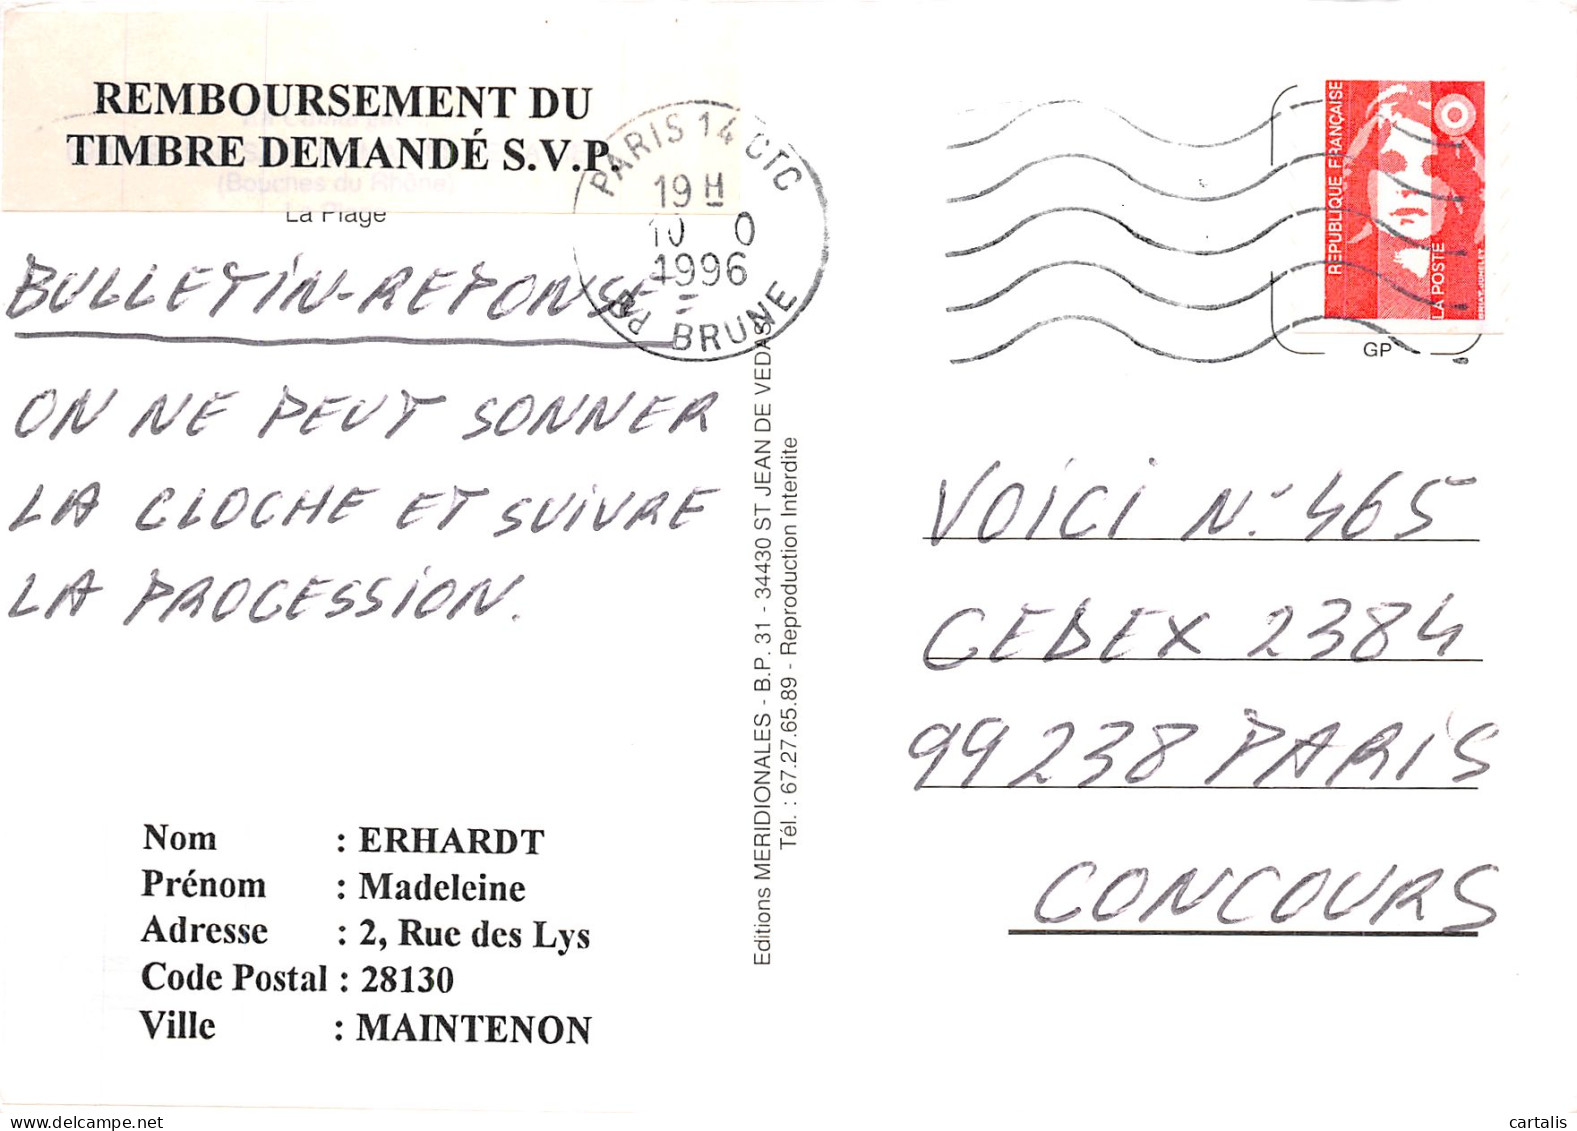 REMBOURSEMENT DU
TIMBRE DEMANDÉ S.V.P.
(Bouches du Rhône)
La Plage
BULLETIN-REPONSE:
ON NE PEUT SONNER
LA CLOCHE ET SUIVRE
LA PROCESSION.
Nom : ERHARDT
Prénom : Madeleine
Adresse : 2, Rue des Lys
Code Postal : 28130
Ville : MAINTENON
PARIS 14 CTC
19 H
10 0
1996
BRUNE
Editions MERIDIONALES - B.P. 31 - 34430 ST JEAN DE VEDAS
Tél. : 67.27.65.89 - Reproduction Interdite
REPUBLIQUE FRANÇAISE
LA POSTE
GP
VOICI N° 465
CEDEX 2384
99238 PARIS
CONCOURS
cartalis